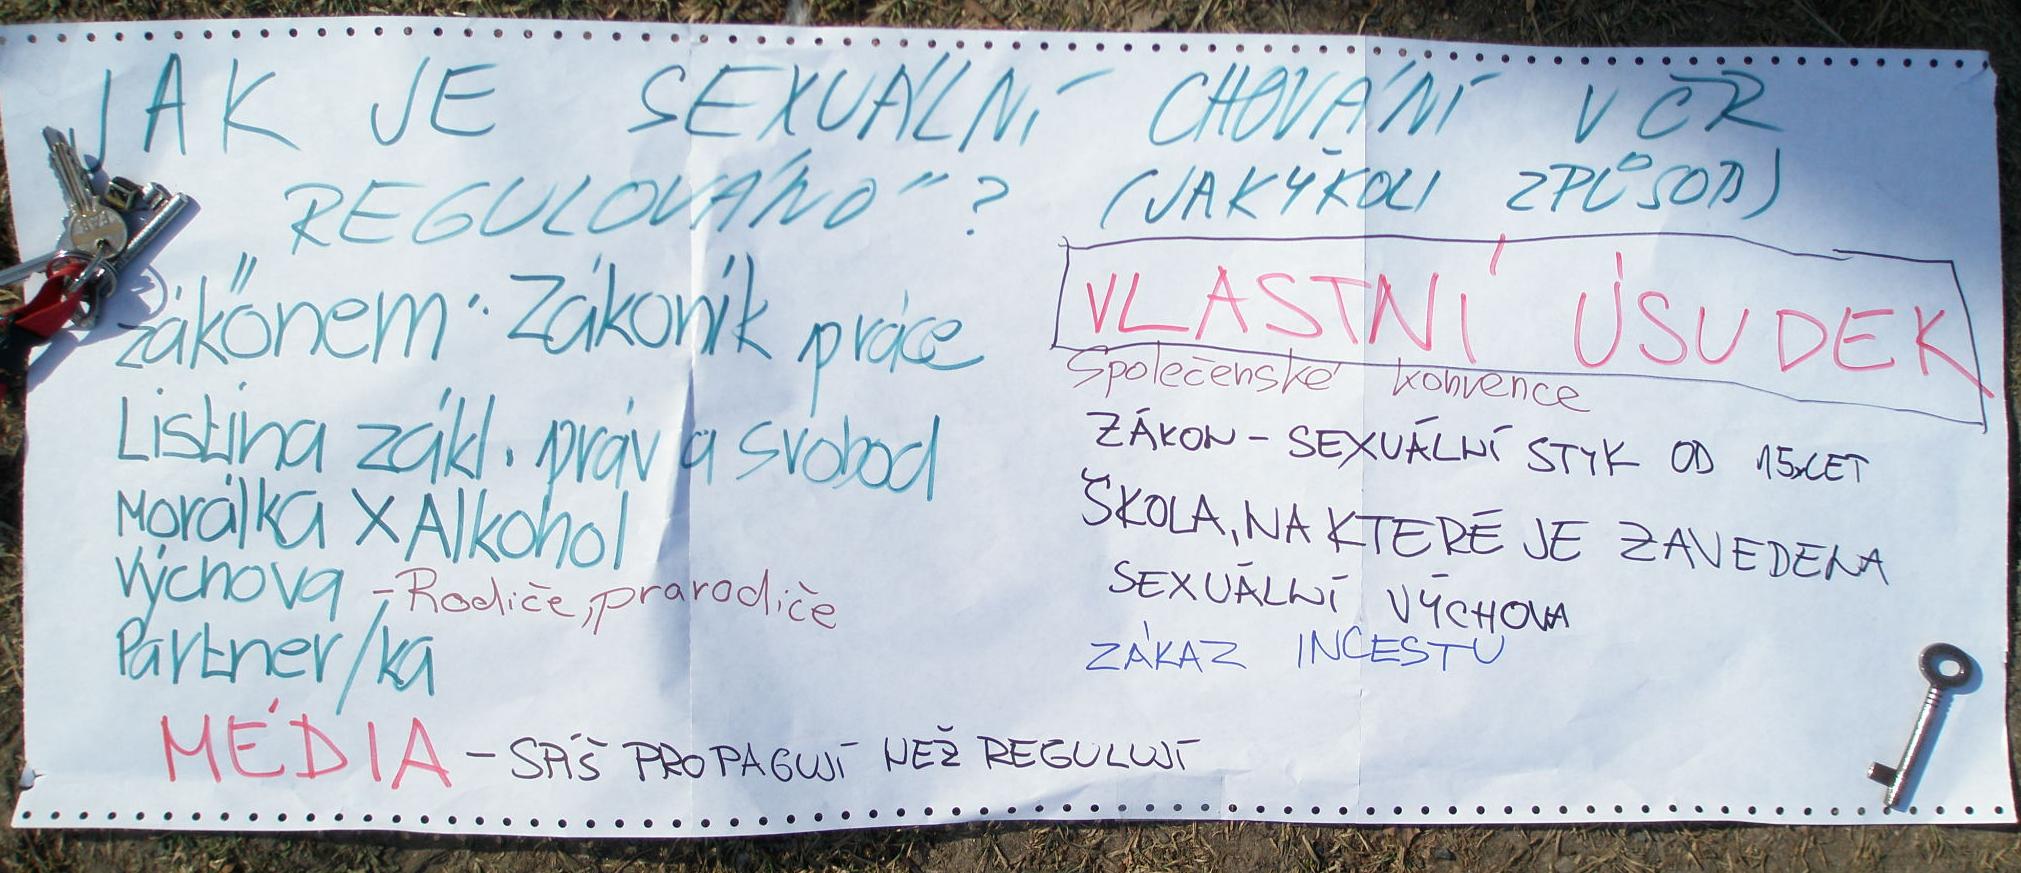 JAK JE SEXUÁLNÍ CHOVÁNÍ V ČR
"REGULOVÁNO"? (JAKÝKOLI ZPŮSOB)
zákonem: Zákoník práce
Listina zákl. práv a svobod
Morálka X Alkohol
Výchova - Rodiče, prarodiče
Partner/ka
MÉDIA - SPÍŠ PROPAGUJÍ NEŽ REGULUJÍ
VLASTNÍ ÚSUDEK
Společenské konvence
ZÁKON - SEXUÁLNÍ STYK OD 15 LET
ŠKOLA, NA KTERÉ JE ZAVEDENA
SEXUÁLNÍ VÝCHOVA
ZÁKAZ INCESTU